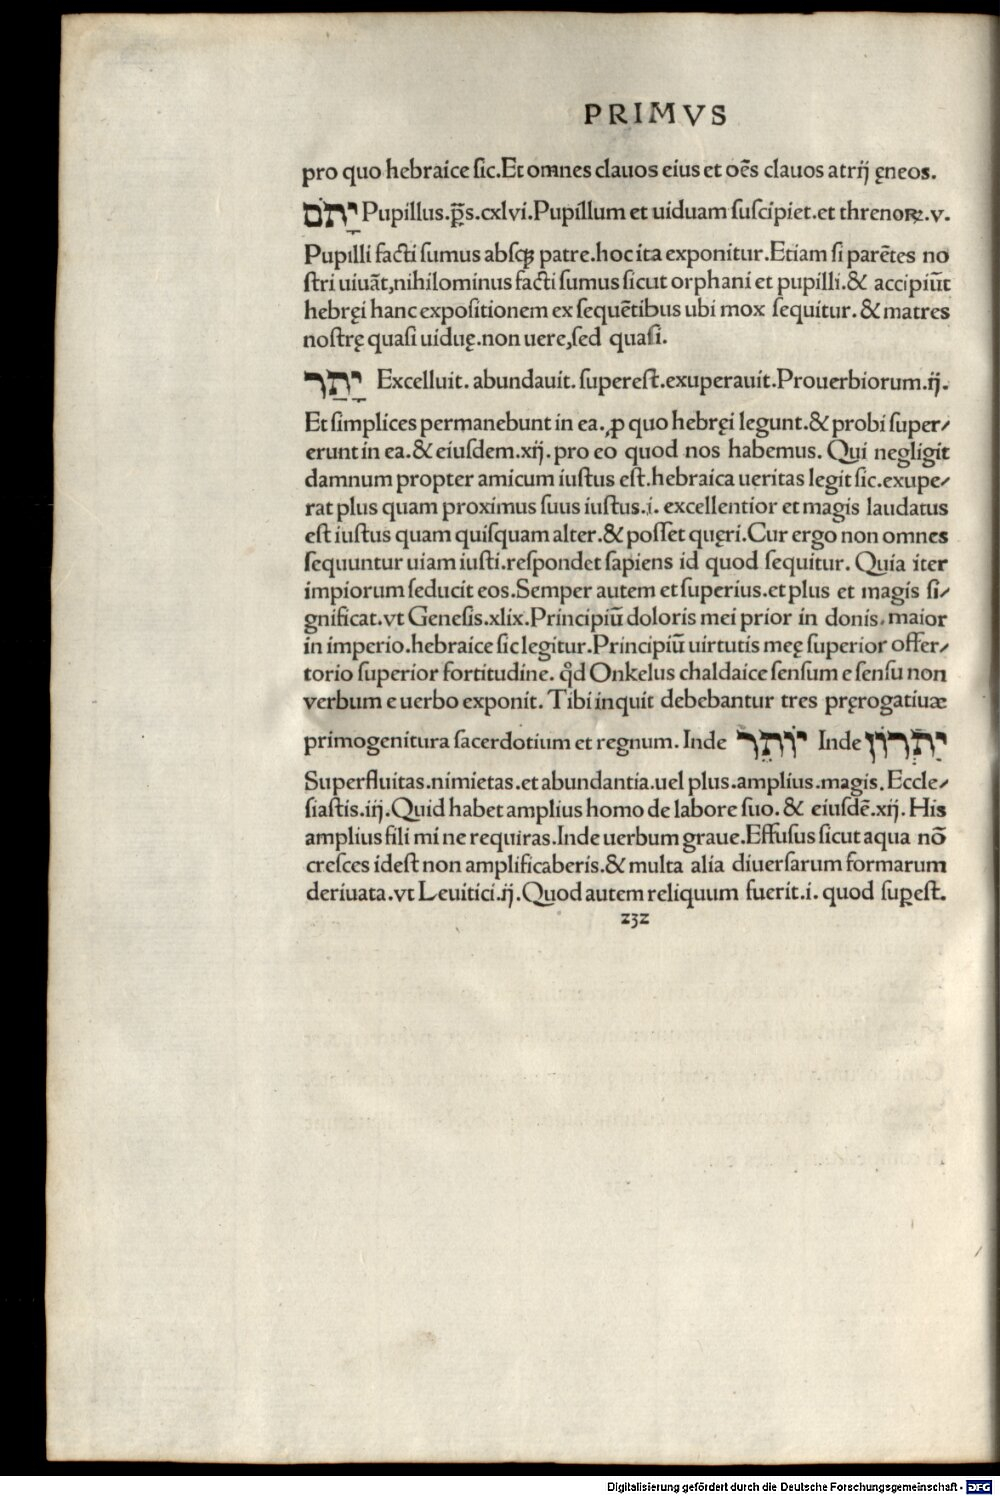 PRIMVS
pro quo hebraice sic.Et omnes clauos eius et oēs clauos atrij ęneos.
יָתֹם Pupillus.p̄s.cxlvi.Pupillum et uiduam suscipiet.et threnoꝝ.v.
Pupilli facti sumus absqꝫ patre.hoc ita exponitur.Etiam si parētes no
stri uiuāt,nihilominus facti sumus sicut orphani et pupilli.& accipiūt
hebręi hanc expositionem ex sequētibus ubi mox sequitur.& matres
nostrę quasi uiduę.non uere,sed quasi.
יָתַר Excelluit. abundauit. superest.exuperauit.Prouerbiorum.ij.
Et simplices permanebunt in ea.ꝓ quo hebręi legunt.& probi super/
erunt in ea.& eiusdem.xij.pro eo quod nos habemus. Qui negligit
damnum propter amicum iustus est.hebraica ueritas legit sic.exupe/
rat plus quam proximus suus iustus.i. excellentior et magis laudatus
est iustus quam quisquam alter.& posset quęri.Cur ergo non omnes
sequuntur uiam iusti.respondet sapiens id quod sequitur. Quia iter
impiorum seducit eos.Semper autem et superius.et plus et magis si/
gnificat.vt Genesis.xlix.Principiū doloris mei prior in donis.maior
in imperio.hebraice sic legitur.Principiū uirtutis meę superior offer/
torio superior fortitudine. qd̉ Onkelus chaldaice sensum e sensu non
verbum e uerbo exponit. Tibi inquit debebantur tres pręrogatiuæ
primogenitura sacerdotium et regnum. Inde יוֹתֵר Inde יִתְרוֹן
Superfluitas.nimietas.et abundantia.uel plus.amplius.magis.Eccle/
siastis.iij.Quid habet amplius homo de labore suo. & eiusdē.xij. His
amplius fili mi ne requiras.Inde uerbum graue.Effusus sicut aqua nō
cresces idest non amplificaberis.& multa alia diuersarum formarum
deriuata.vt Leuitici.ij.Quod autem reliquum fuerit.i. quod suꝑest.
232
Digitalisierung gefördert durch die Deutsche Forschungsgemeinschaft - DFG